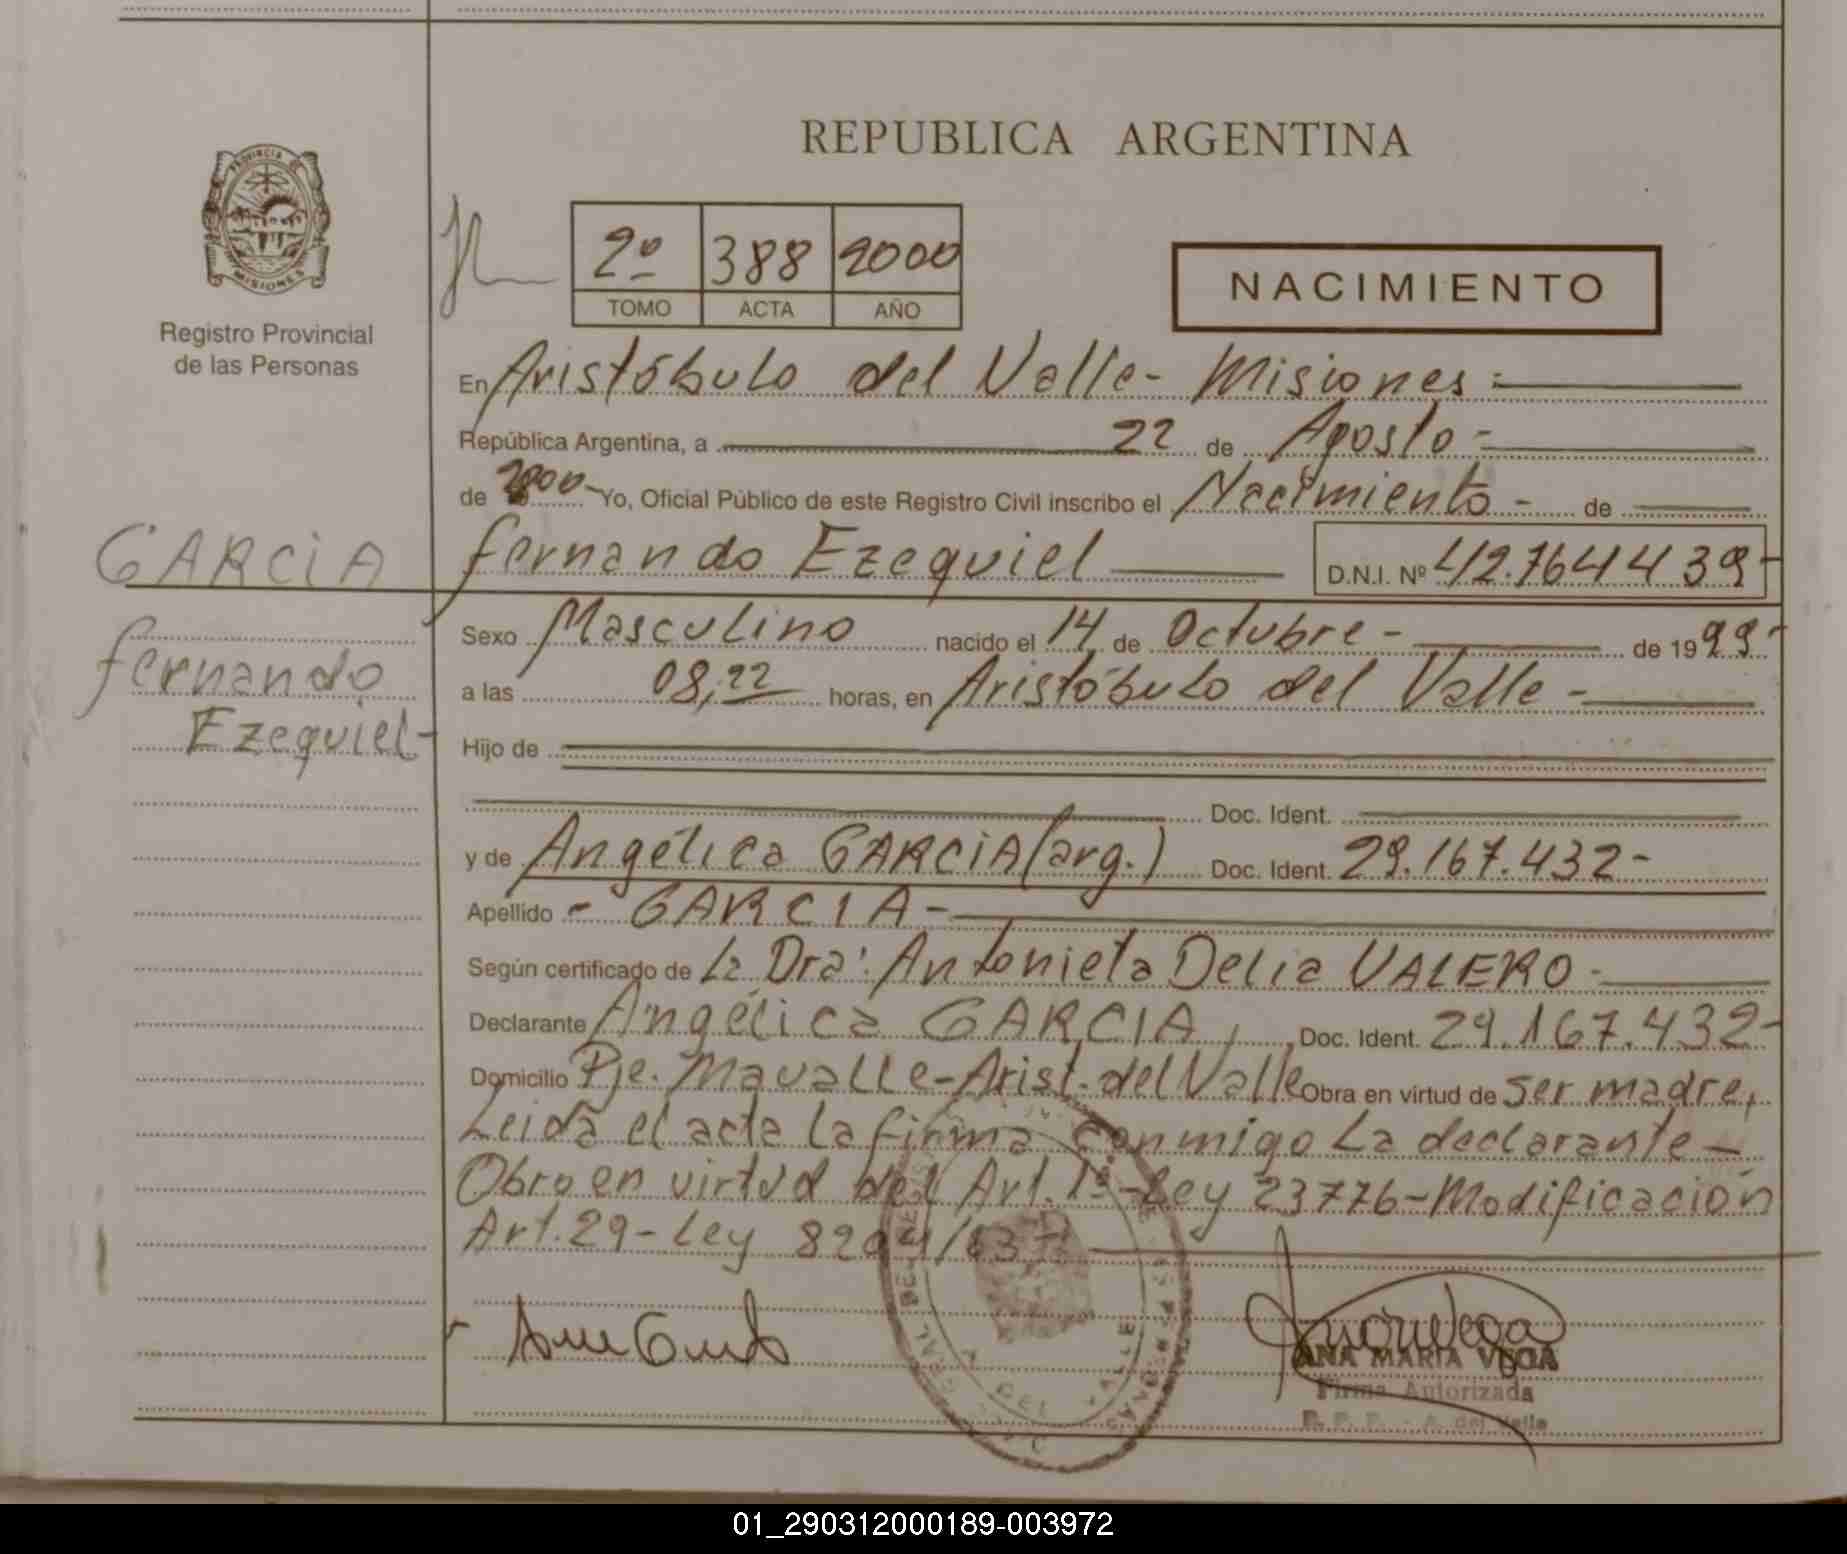 REPUBLICA ARGENTINA
PROVINCIA DE
MISIONES
Registro Provincial
de las Personas
2º 388 2000
TOMO ACTA AÑO
NACIMIENTO
En Aristóbulo del Valle- Misiones
República Argentina, a 22 de Agosto -
de 2000- Yo, Oficial Público de este Registro Civil inscribo el Nacimiento - de
GARCIA
Fernando Ezequiel D.N.I. Nº 42.764439-
Fernando
Ezequiel-
Sexo Masculino nacido el 14 de Octubre - de 1999-
a las 08,22 horas, en Aristóbulo del Valle -
Hijo de
Doc. Ident.
y de Angélica GARCIA (arg.) Doc. Ident. 29.167.432-
Apellido - GARCIA -
Según certificado de La Dra: Antonieta Delia VALERO-
Declarante Angélica GARCIA, Doc. Ident. 29.167.432-
Domicilio Pje. Mavalle-Arist. del Valle Obra en virtud de ser madre,
Leida el acta la firma conmigo La declarante-
Obro en virtud del Art. 1º-Ley 23776-Modificación
Art.29-Ley 8204/63-
ANA MARIA VEGA
Firma Autorizada
R. P. P. - A. del Valle
01_290312000189-003972